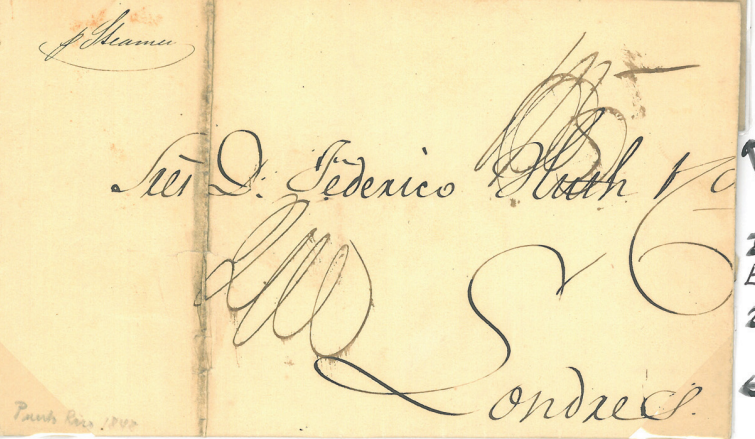 p Steamer
Sres D. Federico Huth y Co
Londres.
Puerto Rico